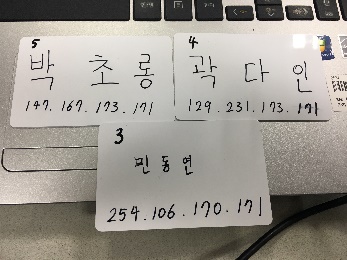 5
박 초롱
147. 167. 173. 171
4
곽 다 인
129. 231. 173. 171
3
민동연
254. 106. 170. 171